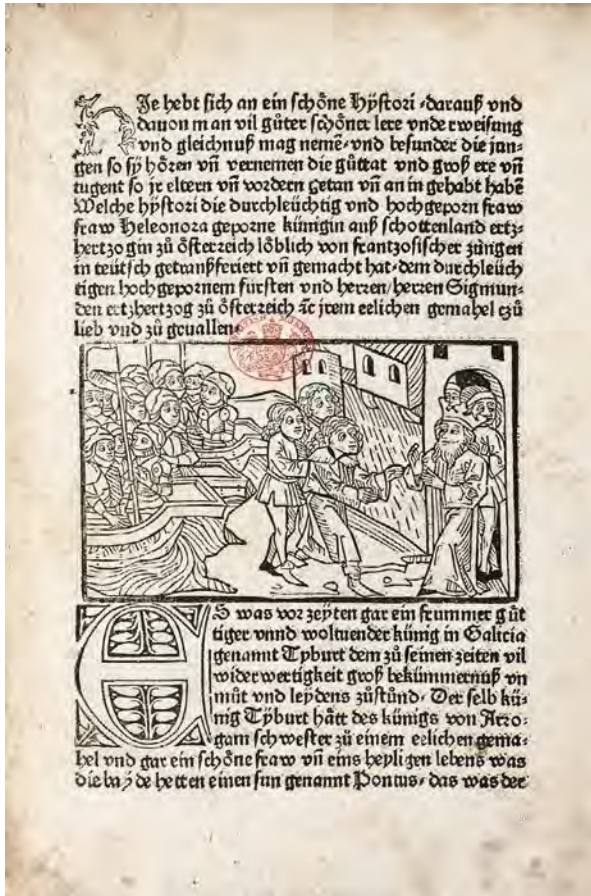 HJe hebt sich an ein schône Hÿstori ⸗ darauß vnd
dauon man vil gûter schôner lere vnderweisung
vnd gleichnuß mag nemē⸗ vnd besunder die jun⸗
gen so sÿ hôren vñ vernemen die gûttat vnd groß ere vñ
tugent so jr eltern vñ vordern getan vñ an in gehabt habē
Welche hÿstori die durchleüchtig vnd hochgeporn fraw
fraw Heleonora geporne künigin auß schottenland ertz⸗
hertzogin zû ôsterreich lôblich von frantzosischer zungen
in teütsch getranßferiert vñ gemacht hat⸗ dem durchleüch
tigen hochgepornem fürsten vnd herren/ herren Sigmun⸗
den ertzhertzog zû ôsterreich ꝛc jrem eelichen gemahel czû
lieb vnd zû geuallen⸗
ES was vor zeÿten gar ein frummer gût
tiger vnnd woltuender künig in Galicia
genannt Tyburt dem zû seinen zeiten vil
widerwertigkeit groß bekümmernuß vn
mût vnd leÿdens zûstûnd⸗ Der selb kü⸗
nig Tÿburt hâtt des künigs von Arro⸗
gam schwester zû einem eelichen gema⸗
hel vnd gar ein schône fraw vñ eins heyligen lebens was
die baÿde hetten einen sun genannt Pontus⸗ das was der